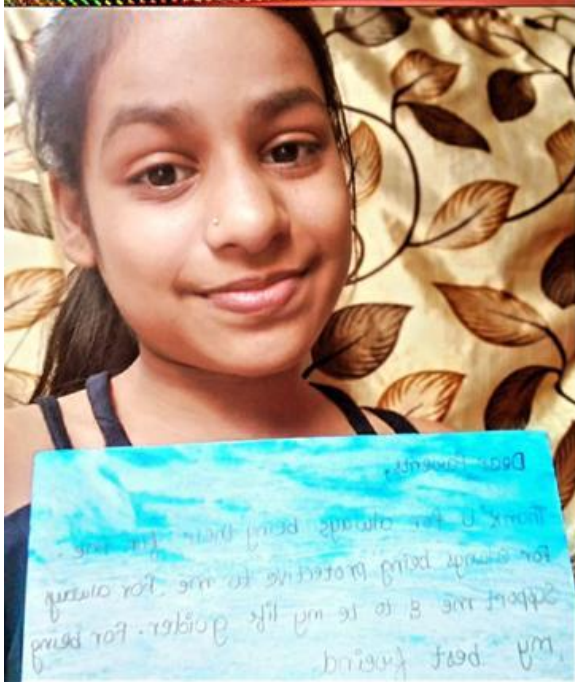 Dear Parents,
Thank U for always being their for me.
For always being protective to me. For always
support me & to le my life goider. For being
my best freind